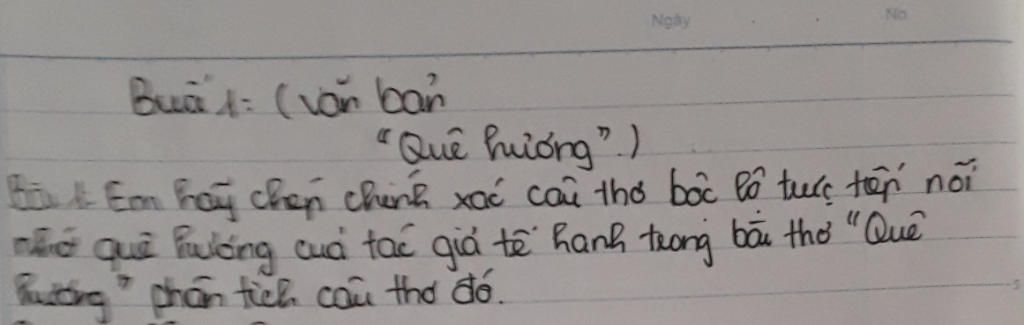 Ngày No
Buổi 1: (văn bản
"Quê hương".)
Bài 1: Em hãy chép chính xác câu thơ bộc lộ trực tiếp nỗi
nhớ quê hương của tác giả tế hanh trong bài thơ "Quê
hương" phân tích câu thơ đó.